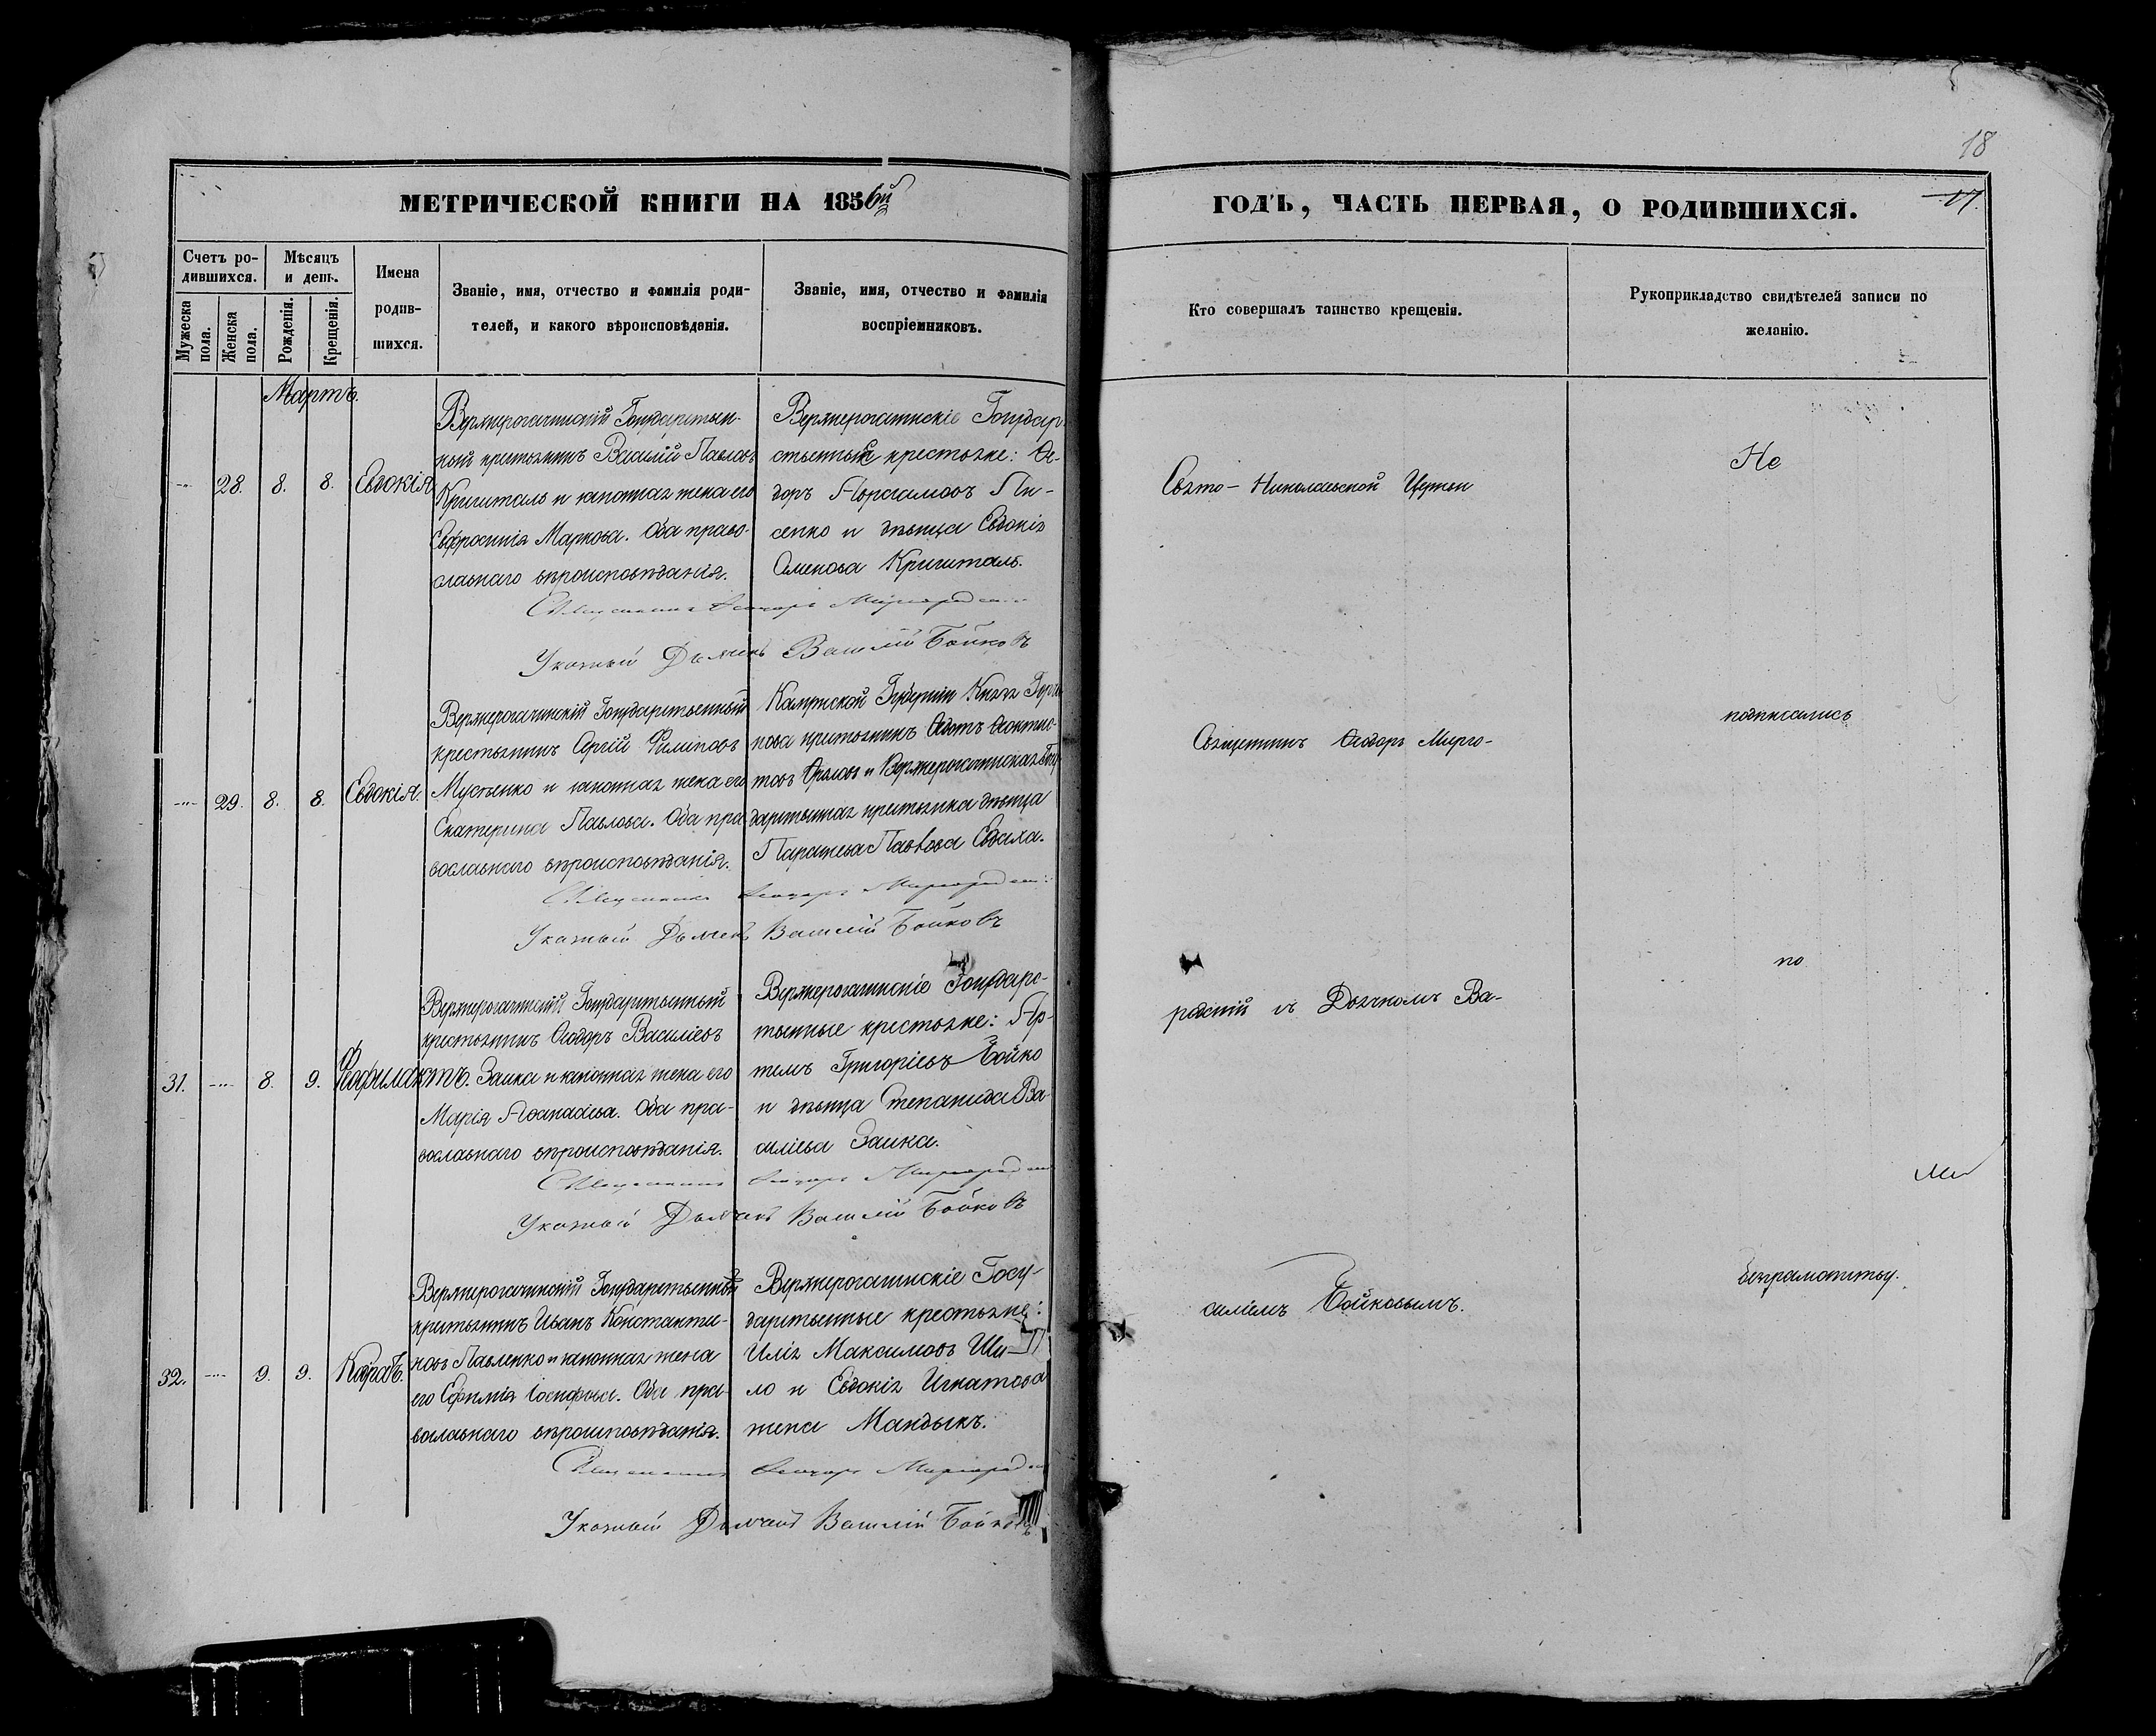 18
МЕТРИЧЕСКОЙ КНИГИ НА 1856й
ГОДЪ, ЧАСТЬ ПЕРВАЯ, О РОДИВШИХСЯ.
17.
Счетъ ро-
дившихся.
Мужеска
пола.
Женска
пола.
Мѣсяцъ
и день.
Рожденія.
Крещенія.
Имена
родив-
шихся.
Званіе, имя, отчество и фамилія роди-
телей, и какого вѣроисповѣданія.
Званіе, имя, отчество и фамилія
воспріемниковъ.
Кто совершалъ таинство крещенія.
Рукоприкладство свидѣтелей записи по
желанію.
Мартъ.
28. 8. 8. Евдокія
Верхнерогачинскій Государствен-
ный крестьянинъ Василій Павловъ
Кришталь и законная жена его
Евфросинія Маркова. Оба право-
славнаго вѣроисповѣданія.
Верхнерогачинскіе Государ-
ственные крестьяне: Ѳе-
доръ
сенко и дѣвица Евдокія
Семенова Кришталь.
Священникъ Ѳеодоръ Миргородскій
Указный Дьячекъ Василій Бойковъ
29. 8. 8. Евдокія.
Верхнерогачинскій Государственный
крестьянинъ Сергій Филиповъ
Мусѣенко и законная жена его
Екатерина Павлова. Оба пра-
вославнаго вѣроисповѣданія.
Губерніи Князя
кова крестьянинъ
товъ и Верхнерогачинская Госу-
дарственная крестьянка дѣвица
Параскева Павлова
Священникъ Ѳеодоръ Миргородскій
Указный Дьячекъ Василій Бойковъ
31. 8. 9. Ѳеофилактъ.
Верхнерогачинскій Государственный
крестьянинъ Ѳеодоръ Василіевъ
Заика и законная жена его
Марія Аѳанасіева. Оба пра-
вославнаго вѣроисповѣданія.
Верхнерогачинскіе Государс-
твенные крестьяне: Ар-
темъ Григоріевъ Бойко
и дѣвица Степанида Ва-
силіева Заика.
Священникъ Ѳеодоръ Миргородскій
Указный Дьячекъ Василій Бойковъ
32. 9. 9. Кодратъ.
Верхнерогачинскій Государственный
крестьянинъ Иванъ Константи-
новъ Павленко и законная жена
его Ефимія Іосифова. Оба пра-
вославнаго вѣроисповѣданія.
Верхнерогачинскіе Госу-
дарственные крестьяне:
Илія Максимовъ Ши-
ло и Евдокія Игнатова
жена Мандыкъ.
Священникъ Ѳеодоръ Миргородскій
Указный Дьячекъ Василій Бойковъ
Свято-Николаевской Церкви
Священникъ Ѳеодоръ Мирго-
родскій съ Дьячкомъ Ва-
силіемъ Бойковымъ.
Не
подписались
по
безграмотству.